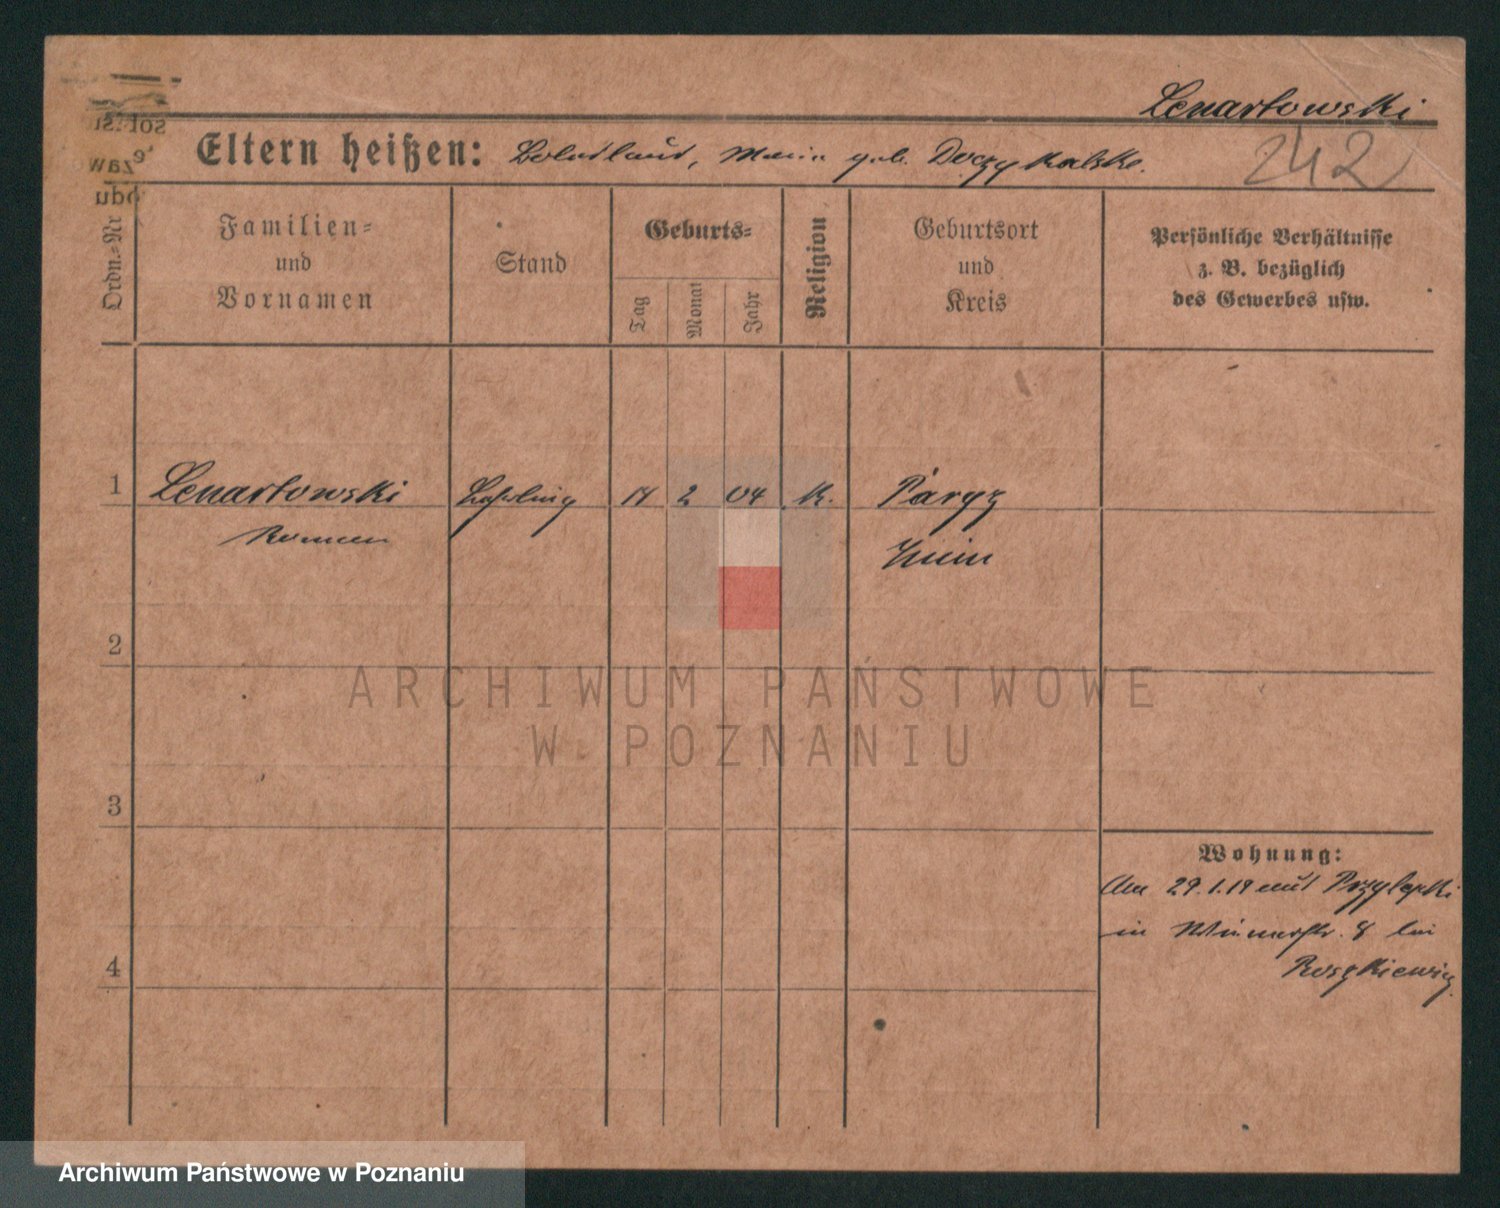 Lenartowski
Eltern heißen: Boleslaus, Maria geb.
242
Ordn.-Nr
Familien-
und
Vornamen
Stand
Geburts-
Tag
Monat
Jahr
Religion
Geburtsort
und
Kreis
Persönliche Verhältnisse
z. B. bezüglich
des Gewerbes usw.
1 Lenartowski Lehrling 2 04 K. Paryz
Roman Znin
2
3
4
ARCHIWUM PAŃSTWOWE
W POZNANIU
Wohnung:
Am 29.1.19 Przylepki
in 8 bei
Roszkiewicz
Archiwum Państwowe w Poznaniu